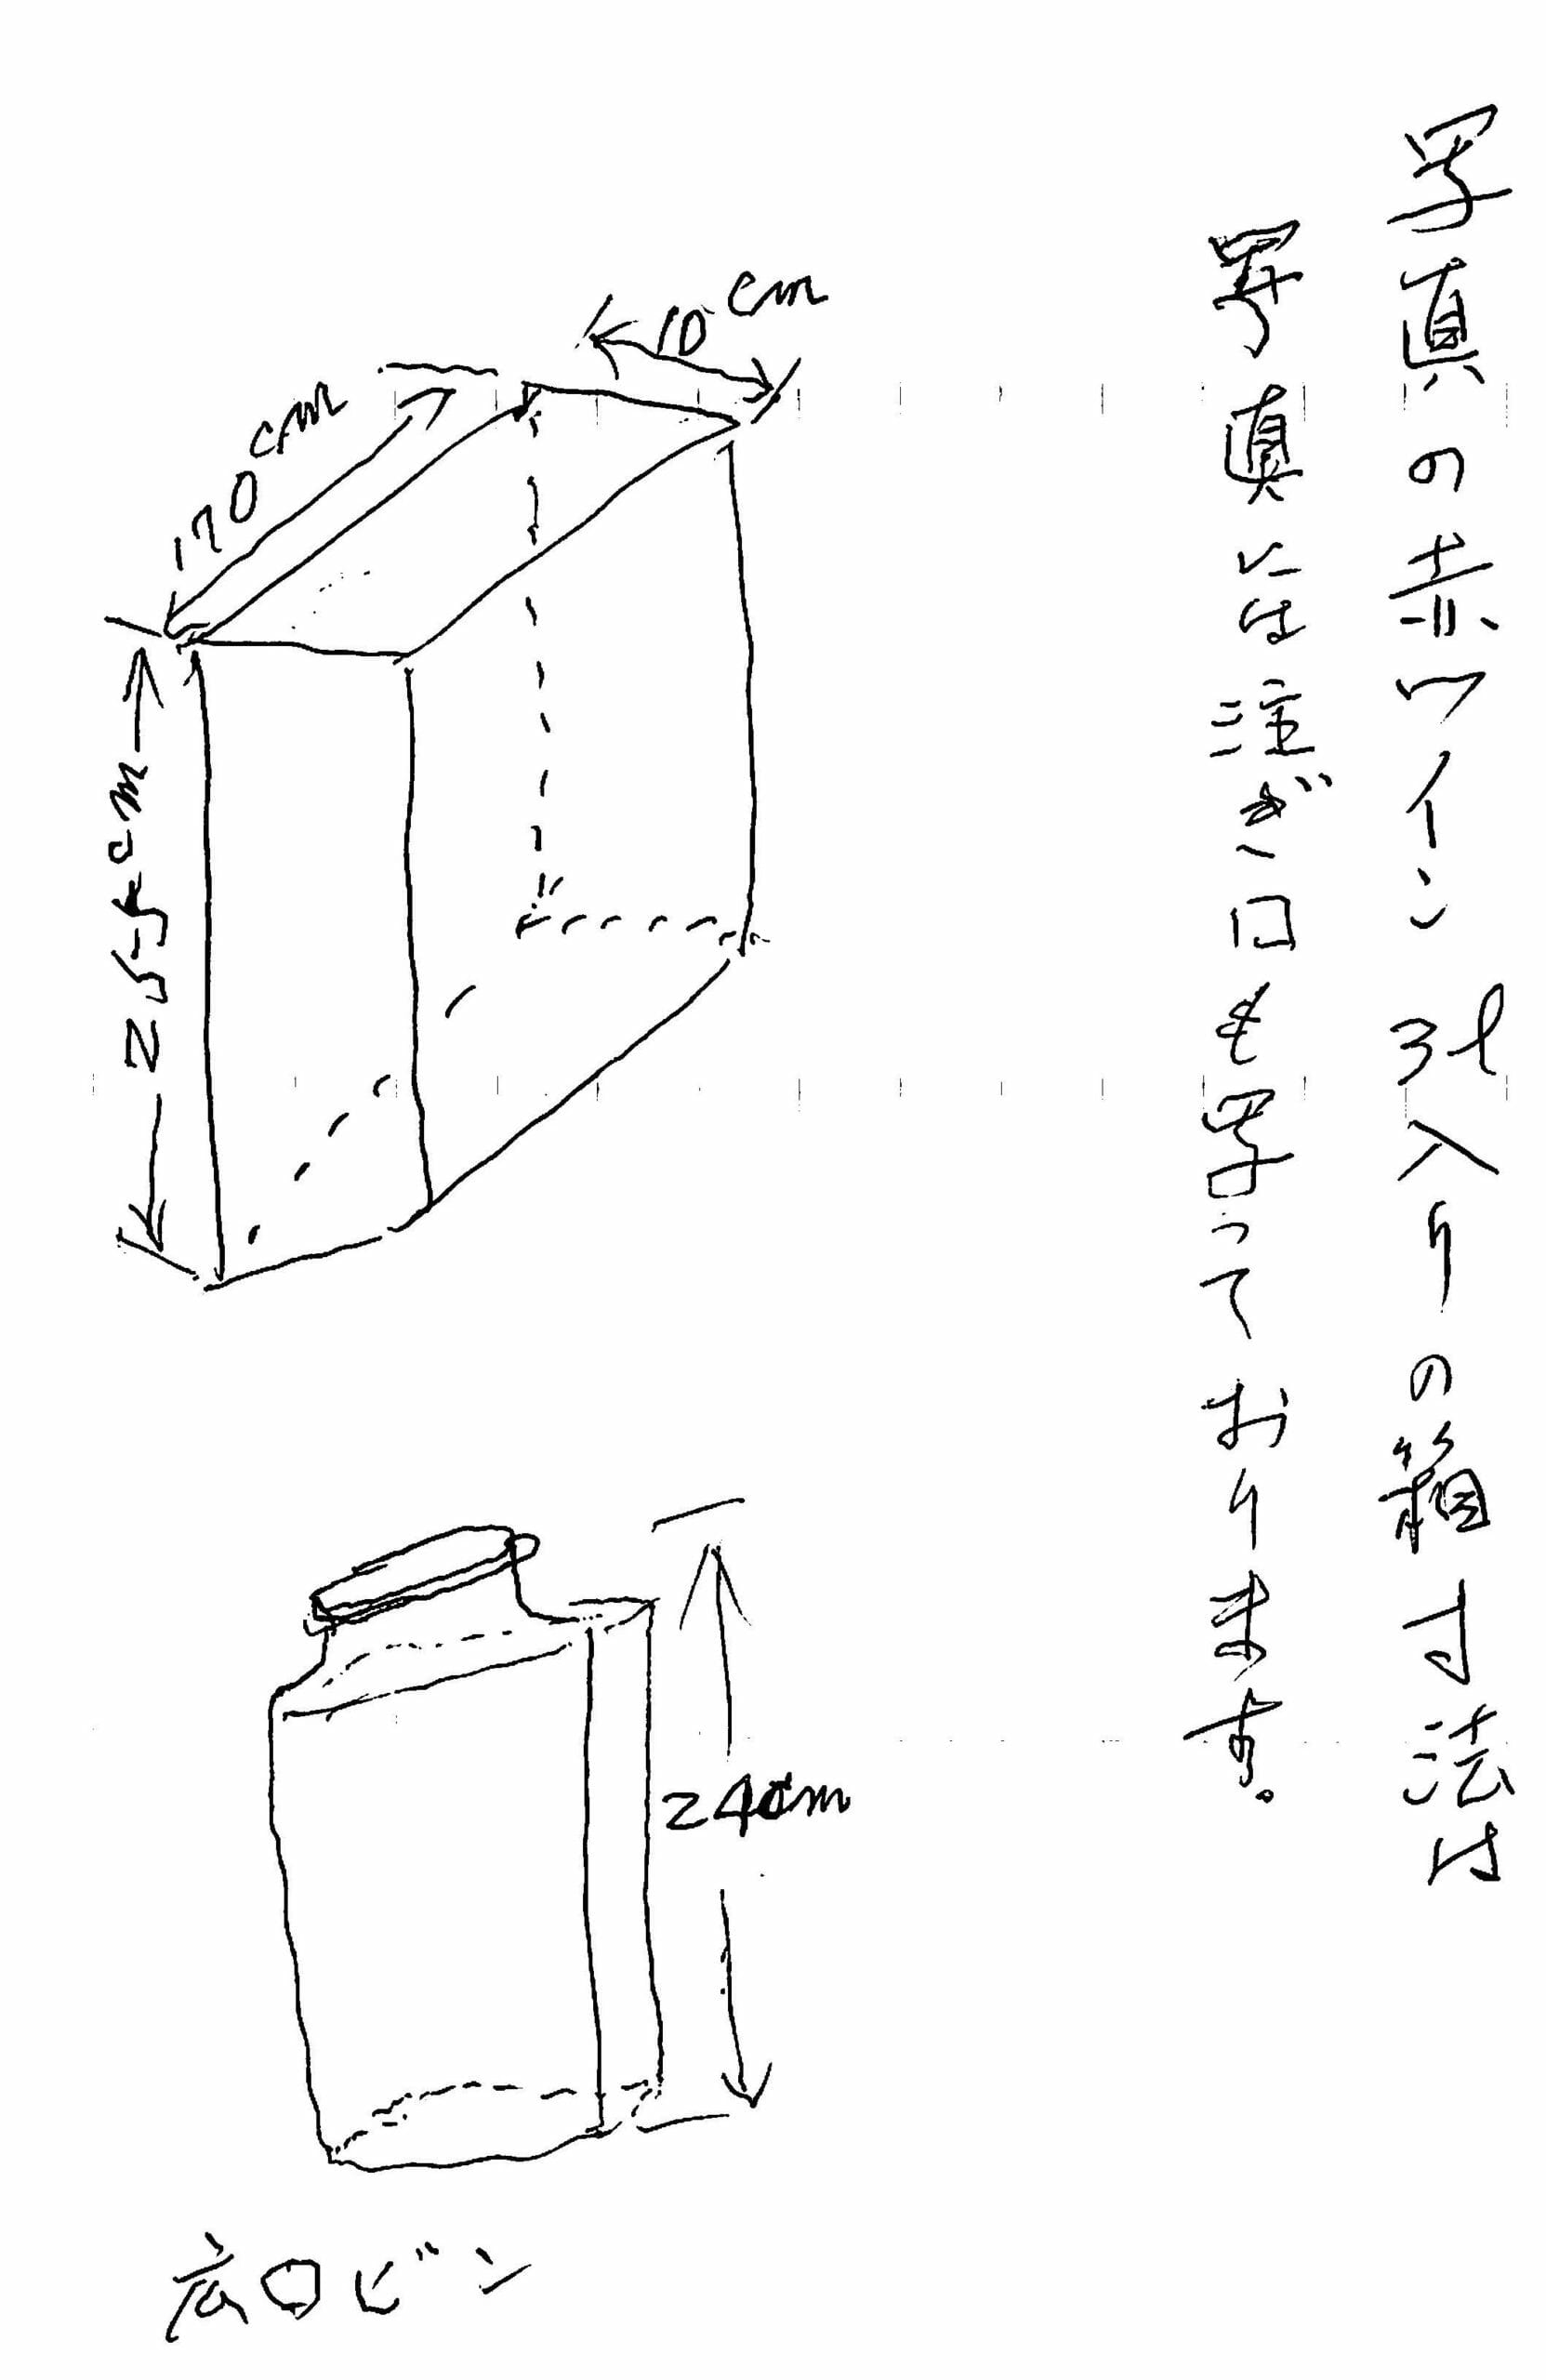 写真の赤ワイン 3ℓ入りの箱寸法は
写真には注ぎ口も写っております。
10cm
170cm
24cm
広口ビン